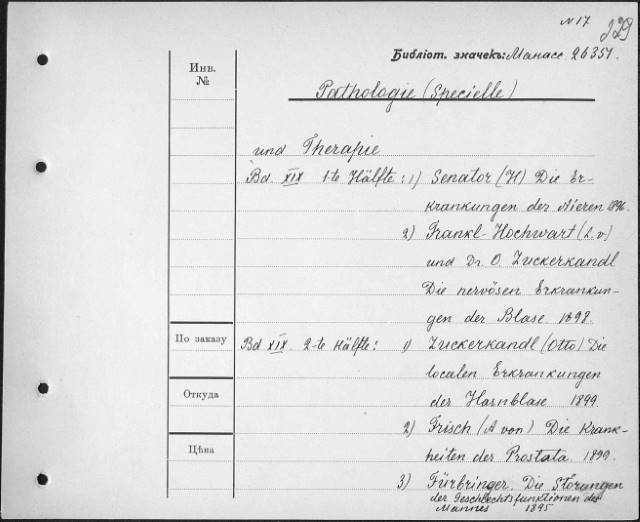 N 17
229
Библіот. значекъ: Манасс. 26351.
Инв.
№
Pathologie (Specielle)
und Therapie
Bd. XIX 1-te Hälfte: 1) Senator (H) Die Er-
krankungen der Nieren 1896.
2) Frankl-Hochwart (L. v)
und Dr. O. Zuckerkandl
Die nervösen Erkrankun-
gen der Blase. 1898.
По заказу
Bd XIX 2-te Hälfte: 1) Zuckerkandl (Otto) Die
localen Erkrankungen
der Harnblase 1899.
Откуда
2) Frisch (A von) Die Krank-
heiten der Prostata. 1899.
Цѣна
3) Fürbringer. Die Störungen
der Geschlechtsfunktionen des
Mannes 1895